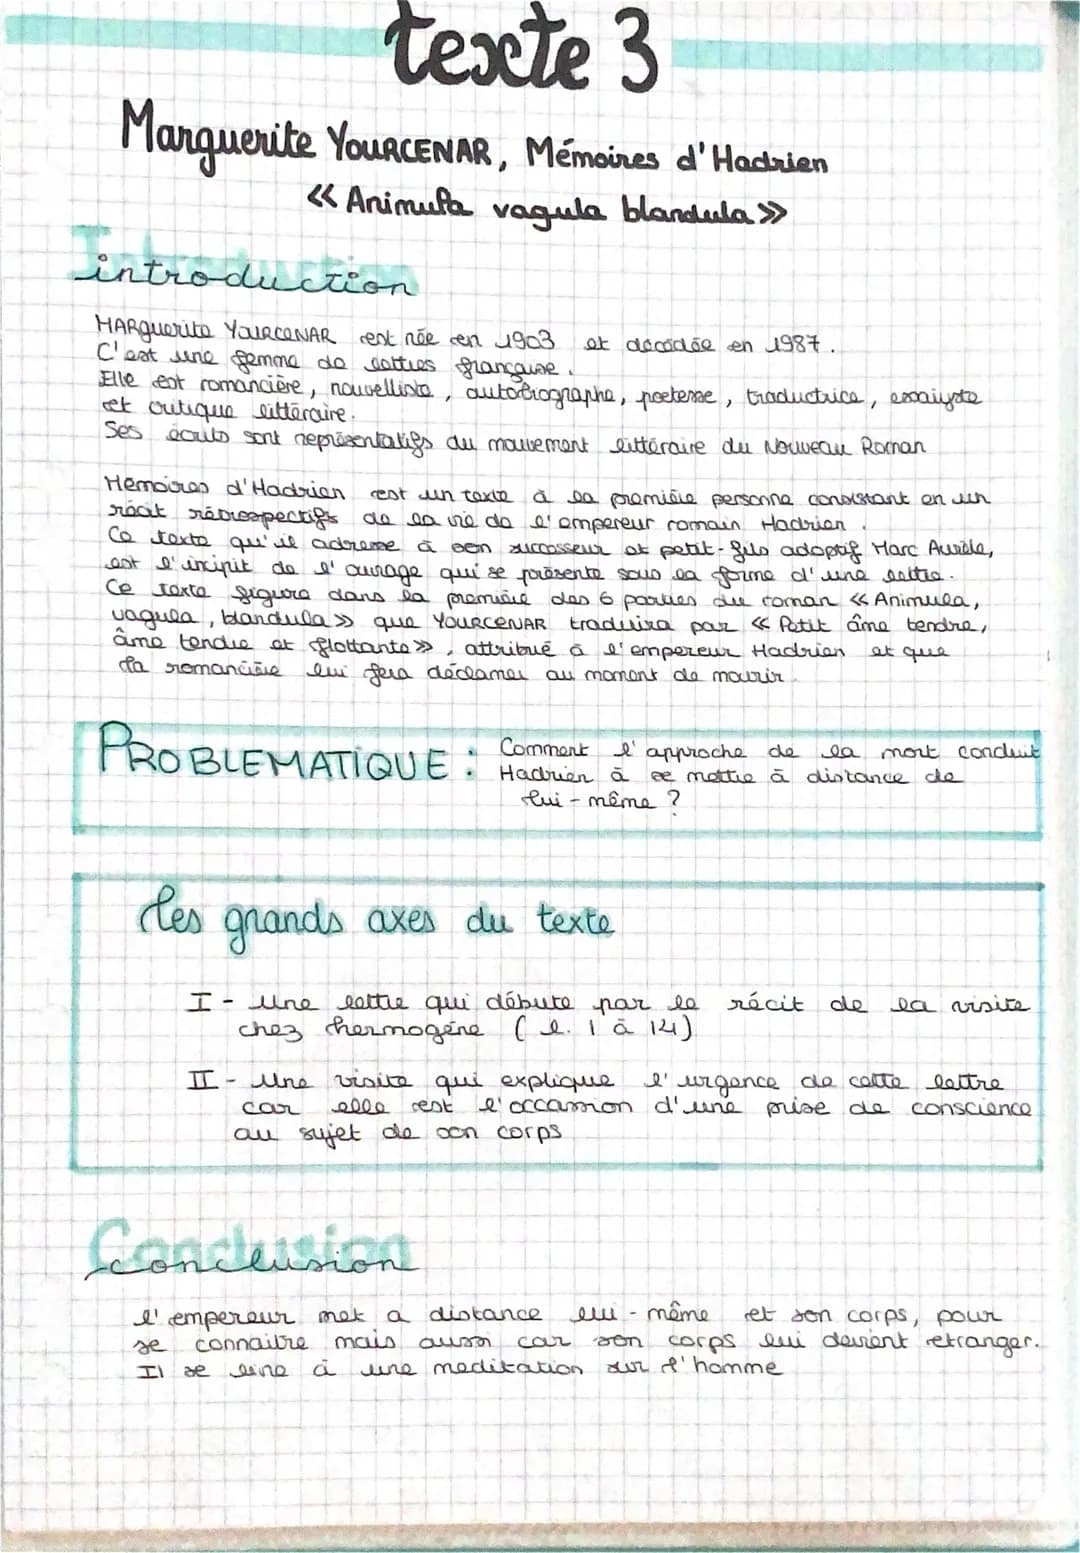 texte 3
Marguerite YOURCENAR, Mémoires d'Hadrien
« Animula vagula blandula »
Introduction
introduction
MARguerite YOURCENAR est née en 1903 et décédée en 1987.
C'est une femme de lettres française.
Elle est romancière, nouvelliste, autobiographe, poetesse, traductrice, essaiyste
et critique littéraire.
Ses écrits sont représentatifs du mouvement littéraire du Nouveau Roman
Mémoires d'Hadrien est un texte à la première personne consistant en un
récit rétrospectifs de la vie de l'empereur romain Hadrien.
Ce texte qu'il adresse à son successeur et petit-fils adoptif Marc Aurèle,
est l'incipit de l'ouvrage qui se présente sous la forme d'une lettre.
Ce texte figure dans la première des 6 parties du roman « Animula,
vagula, blandula » que YOURCENAR traduira par « Petit âme tendre,
âme tendre et flottante », attribué à l'empereur Hadrien et que
la romancière lui fera déclamer au moment de mourir.
PROBLEMATIQUE : Comment l'approche de la mort conduit
Hadrien à se mettre à distance de
lui-même ?
Les grands axes du texte
I - Une lettre qui débute par le récit de la visite
chez hermogène (l. 1 à 14)
II - Une visite qui explique l'urgence de cette lettre
car elle est l'occassion d'une prise de conscience
au sujet de son corps
Conclusion
conclusion
l'empereur met a distance lui-même et son corps, pour
se connaitre mais aussi car son corps lui devient etranger.
Il se livre à une meditation sur l'homme